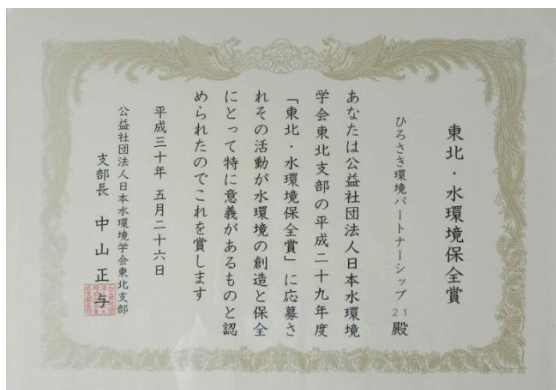 東北・水環境保全賞
ひろさき環境パートナーシップ21殿
あなたは公益社団法人日本水環境
学会東北支部の平成二十九年度
「東北・水環境保全賞」に応募さ
れその活動が水環境の創造と保全
にとって特に意義があるものと認
められたのでこれを賞します
平成三十年 五月二十六日
公益社団法人日本水環境学会東北支部
支部長 中山正与